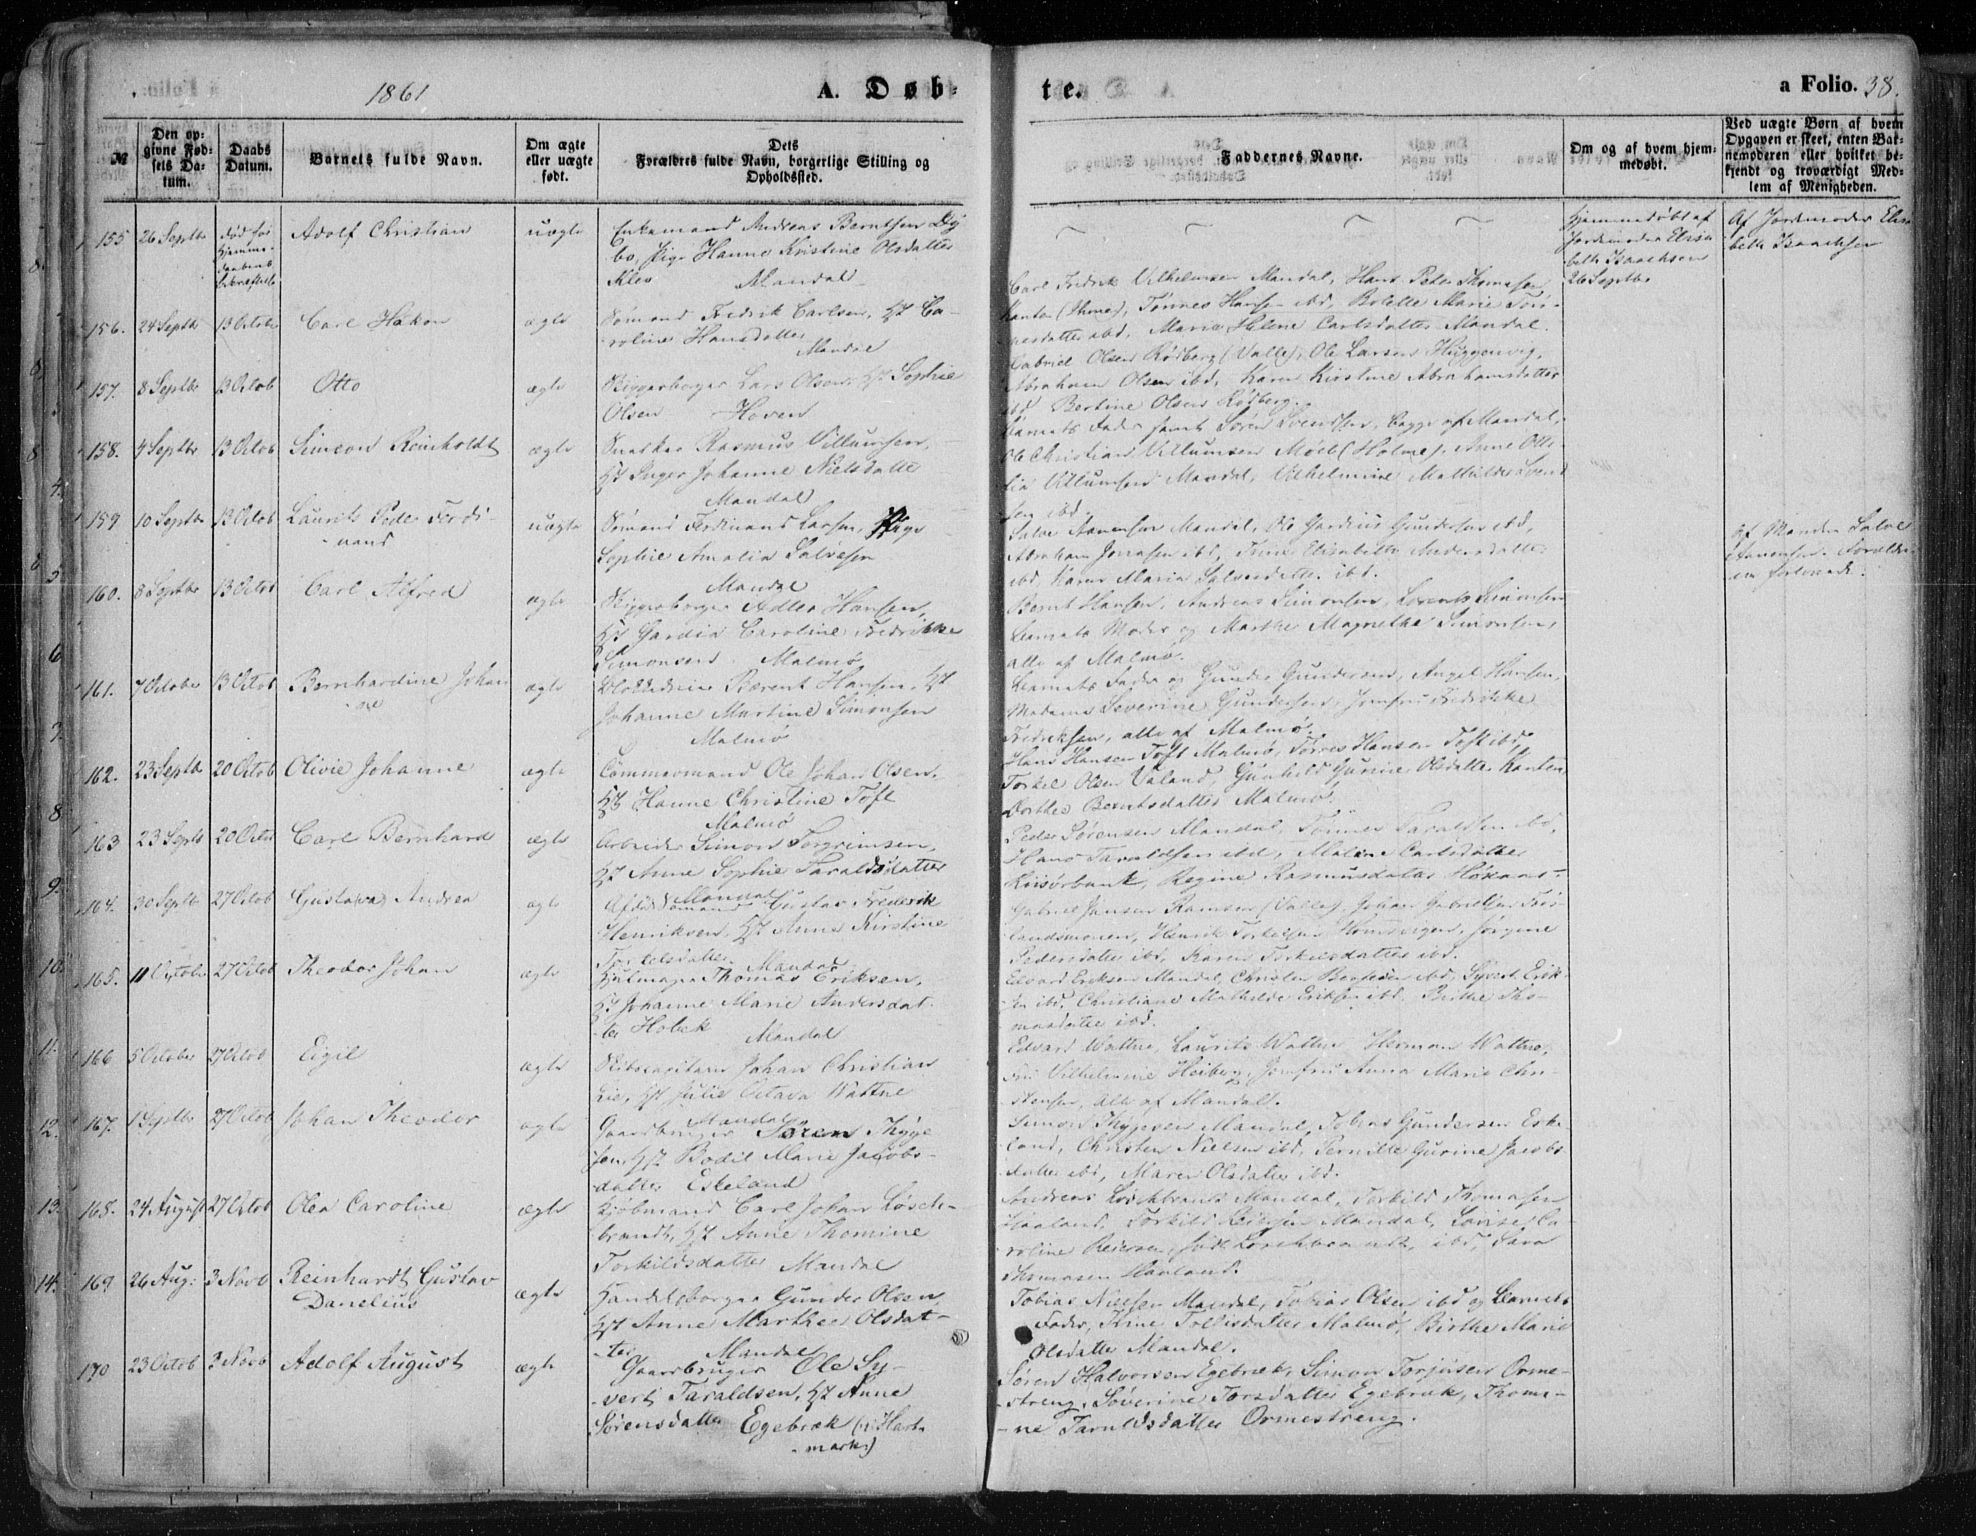 1861
A. Døb-
te.
a Folio. 38.
№
Den op-
givne Fød-
sels Da-
tum.
Daabs
Datum.
Barnets fulde Navn.
Om ægte
eller uægte
født.
Dets
Forældres fulde Navn, borgerlige Stilling og
Opholdssted.
Faddernes Navne.
Om og af hvem hjem-
medøbt.
Ved uægte Børn af hvem
Opgaven er skeet, enten Bar-
nemoderen eller hvilket be-
kjendt og troværdigt Med-
lem af Menigheden.
155 26 Septbr Adolf Christian uægte Enkemand Andreas Berntsen
bo, Pige Hanne Kristine Olsdatter
Kleo Mandal
Hjemmedøbt af
Jordemoder Elisa
beth Isaachsen
26 Septbr
Af Jordemoder Elisa-
beth Isaachsen
156. 24 Septbr 13 Octobr Carl Hakon ægte Sømand Fredrik Carlsen, H Ca-
roline Hansdatter
Mandal
Carl Fredrik Vilhelmsen Mandal, Hans Peter Thomasen
Tønnes Hansen ibd, Bolette Marie
ibd, Marie Helene Carlsdatter Mandal.
157. 8 Septbr 13 Octob Otto ægte Byggerborger Lars Olsen, H Sophie
Olsen Hoven
Gabriel Olsen Rødberg (Valle), Ole Larsen Huggenvig,
Abraham Olsen ibd, Karen Kirstine Abrahamsdatter
ibd Bertine Olsen Rødberg.
158. 4 Septbr 13 Octob Simeon Reinholdt ægte Snedker Rasmus Villumsen,
H Inger Johanne Nielsdatter
Mandal
Barnets Fader samt Søren Svendsen, begge af Mandal,
Ole Christian Villumsen Møll (Holme), Anne
Villumsen Mandal, Vilhelmine Mathilde Svend
sen ibd.
159 10 Septbr 13 Octob Laurits Peder Ferdi-
nand
uægte Sømand Ferdinand Larsen, Pige
Sophie Amalia Salvesen
Mandal
Salve Aanensen Mandal, Ole Gardius Gundersen ibd,
Abraham Jonassen ibd, Trine Elisabeth Andersdatter
ibd, Karen Maria Salvesdatter ibd.
Af Manden Salve
Aanensen. Forældre
ne forlovede.
160. 8 Septbr 13 Octob Carl Alfred ægte Byggerborger Adler Hansen,
H Gardia Caroline Fredrikke
Simonsen. Malmø
Bernt Hansen, Andreas Simonsen, Lorents Simonsen
Barnets Moder og Marthe Magrethe Simonsen,
alle af Malmø.
161. 7 October 13 Octob Bernhardine Johan
ne
ægte Blokkedreier Berent Hansen, H
Johanne Martine Simonsen
Malmø
Barnets Fader og Gunder Gundersen, Angel Hansen,
Madame Severine Gundersen, Jomfru Fredrikke
Fredriksen, alle af Malmø.
162. 23 Septbr 20 Octob Olivie Johanne ægte Tømmermand Ole Johan Olsen,
H Hanne Christine Toft
Malmø
Hans Hansen Toft Malmø, Torres Hansen Toft ibd,
Torkel Olsen Valand, Gunhild Gurine Olsdatter
Dorthea Berntsdatter Malmø.
163 23 Septb 20 Octob Carl Bernhard ægte Arbeider Simon Torgrimsen,
H Anne Sophie Taraldsdatter
Mandal
Peder Sørensen Mandal, Tønnes Taraldsen ibd,
Hans Taraldsen ibd, Malene Carlsdatter
Risørbank, Regine Rasmusdatter
164. 30 Septb 27 Octob Gustava Andrea ægte Sømand Gustav Frederik
Henriksen, H Anne Kirstine
Torkelsdatter Mandal
Gabriel Jansen Ramsen (Valle), Johan Gabrielsen
Henrik Torkelsen Homsvigen, Jørgine
Pedersdatter ibd, Karen Torkilsdatter ibd.
165. 11 Octobr 27 Octob Theodor Johan ægte Hjulmager Thomas Eriksen,
H Johanne Marie Andersdat
ter Hobek Mandal
Edvard Eriksen Mandal, Christen ibd, Syvert Erik-
sen ibd, Christiane Mathilde Eriksen ibd, Birthe Tho-
masdatter ibd.
166 5 October 27 Octob Eigil ægte Skibscapitain Johan Christian
Lie, H Julie Octava Wattne
Mandal
Edvard Wattne, Laurits Wattne, Herman Wattne,
Fru Vilhelmine Heiberg, Jomfru Anna Marie Chri-
stensen, alle af Mandal.
167. 1 Septbr 27 Octob Johan Theodor ægte Gaardbruger Søren Thyge
sen, H Bodil Marie Jacobs-
datter Eskeland
Simon Thygesen Mandal, Tobias Gundersen Eske-
land, Christen Nielsen ibd, Pernille Gurine Jacobs
datter ibd, Maren Olsdatter ibd.
168. 24 August 27 Octob Olea Caroline ægte Kjøbmand Carl Johan Løsch-
brandt, H Anne Thomine
Torkildsdatter Mandal
Andreas Løschbrandt Mandal, Torkild Thomasen
Haaland, Torkild Reiersen Mandal, Lovise Ca-
roline Reiersen, født Løschbrandt, ibd, Sara
Thomasen Haaland.
169 26 Aug: 3 Novb Reinhardt Gustav
Danelius
ægte Handelsborger Gunder Olsen
H Anne Marthea Olsdat-
ter Mandal
Tobias Nielsen Mandal, Tobias Olsen ibd og Barnets
Fader, Trine Tollisdatter Malmø, Birthe Marie
Olsdatter Mandal.
170 23 Octob 3 Novb Adolf August ægte Gaardbruger Ole Sy-
vert Taraldsen, H Anne
Sørensdatter Egebræk (i Hart-
mark)
Søren Halvorsen Egebræk, Simon Torjusen Orme-
streng, Severine Torsdatter Egebræk, Thomi-
ne Taraldsdatter Ormestreng.